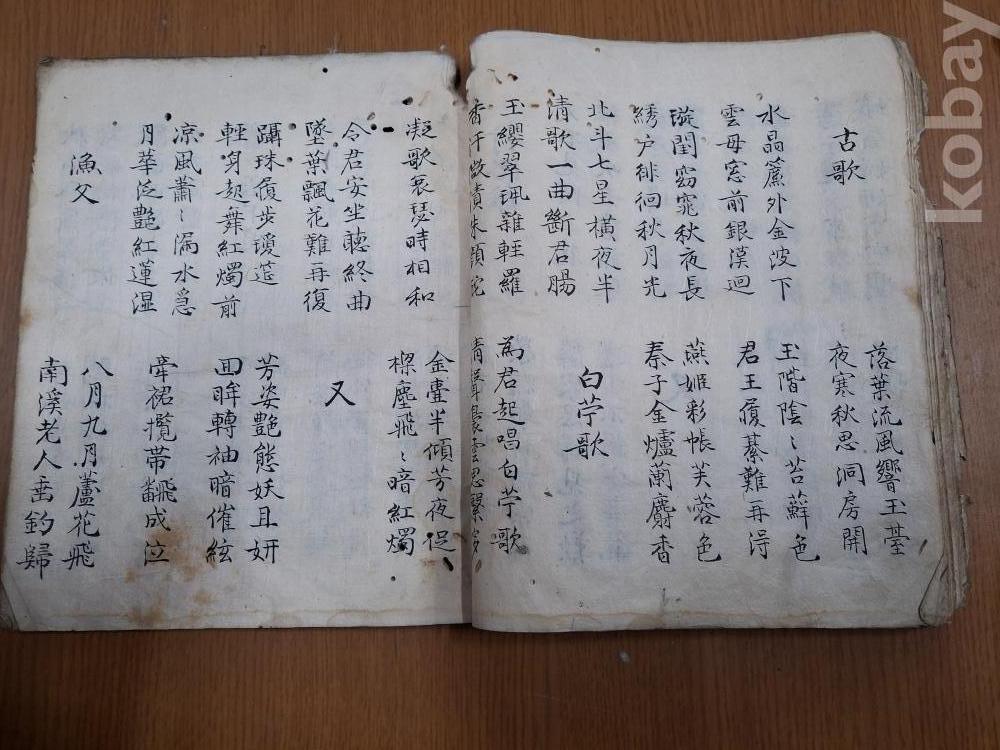 古歌
落葉流風響玉臺
夜寒秋思洞房開
水晶簾外金波下
雲母窓前銀漢迴
玉階陰〻苔蘚色
君王履綦難再得
璇閨窈窕秋夜長
綉户徘徊秋月光
燕姬彩帳芙蓉色
秦子金爐蘭麝香
北斗七星橫夜半
清歌一曲斷君腸
白苧歌
玉纓翠珮雜輕羅
香汗微漬朱顏酡
為君起唱白苧歌
清聲裊雲思繁多
凝歌哀瑟時相和
金壺半傾芳夜促
樑塵飛〻暗紅燭
令君安坐聽終曲
墜葉飄花難再復
又
躡珠履步瓊筵
輕身起舞紅燭前
芳姿艷態妖且妍
回眸轉袖暗催絃
凉風蕭〻漏水急
月華泛艷紅蓮濕
牽裙攬帶飜成泣
漁父
八月九月蘆花飛
南溪老人垂釣歸
kobay